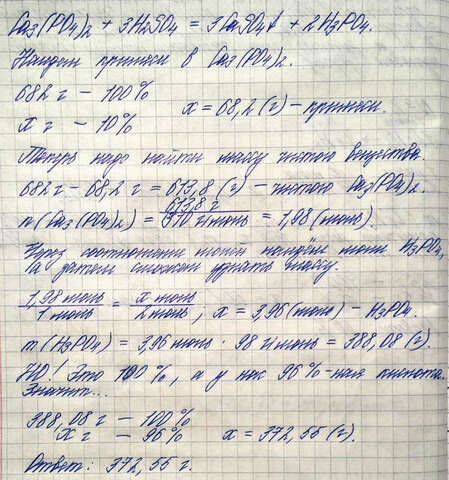 Ca3(PO4)2 + 3H2SO4 = 3CaSO4↓ + 2H3PO4.
Найдем примеси в Ca3(PO4)2.
682 г – 100%
x г – 10%
x = 68,2 (г) – примеси.
Теперь надо найти массу чистого вещества.
682 г – 68,2 г = 613,8 (г) – чистого Ca3(PO4)2.
n(Ca3(PO4)2) = 613,8 г / 310 г/моль = 1,98 (моль).
Через соотношение молей найдём моли H3PO4,
а затем сможем узнать массу.
1,98 моль / 1 моль = x моль / 2 моль, x = 3,96 (моль) – H3PO4.
m(H3PO4) = 3,96 моль · 98 г/моль = 388,08 (г).
НО! Это 100%, а у нас 96%-ная кислота.
Значит...
388,08 г – 100%
x г – 96%
x = 372,55 (г).
Ответ: 372,55 г.